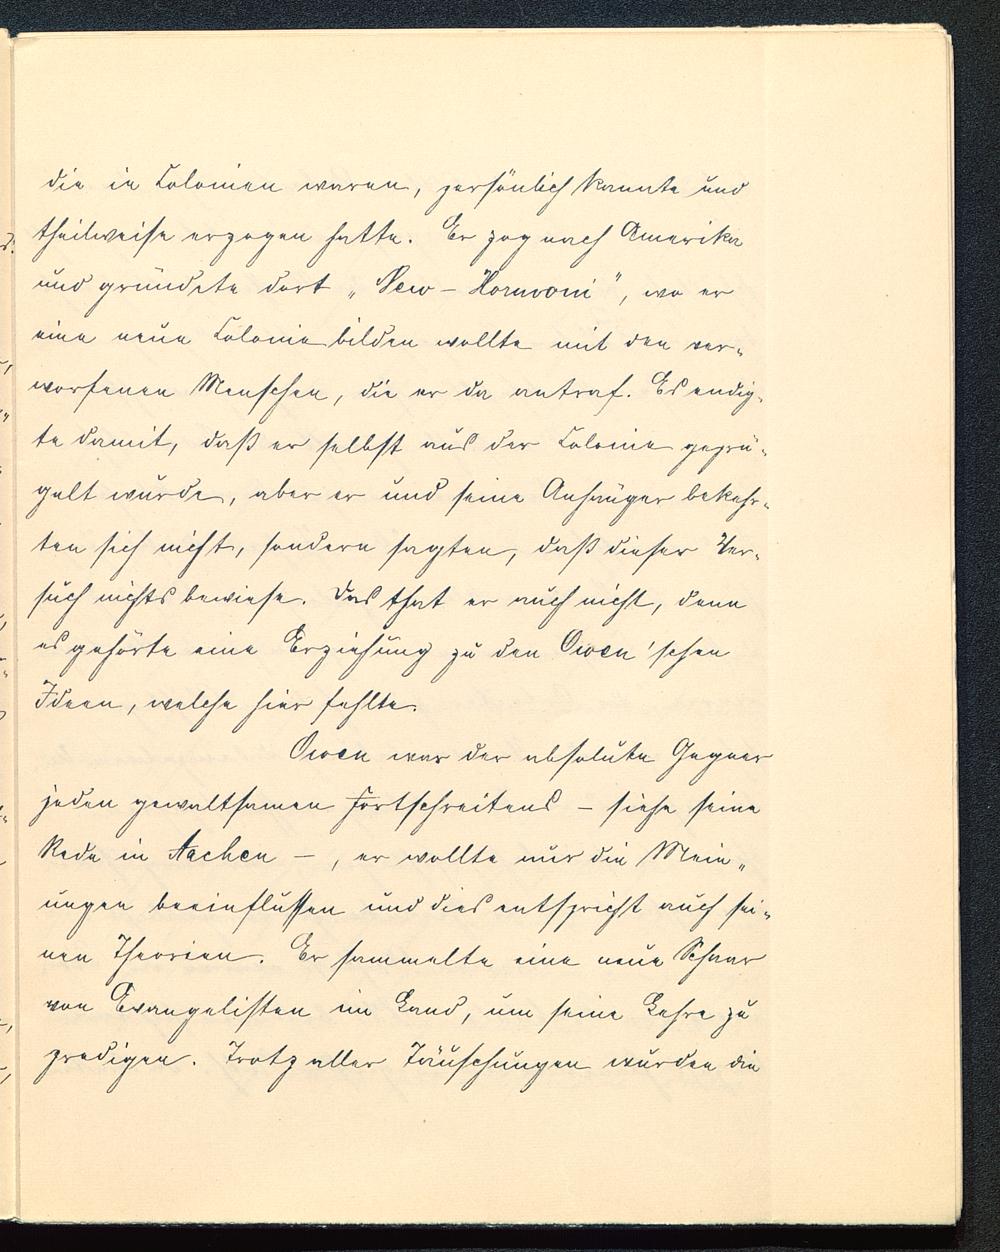 die in Colonien waren, persönlich kannte und
theilweise erzogen hatte. Er zog nach Amerika
und gründete dort „New-Harmoni", wo er
eine neue Colonie bilden wollte mit den ver-
worfenen Menschen, die er da antraf. Es endig-
te damit, daß er selbst aus der Colonie geprü-
gelt wurde, aber er und seine Anhänger bekehr-
ten sich nicht, sondern sagten, daß dieser Ver-
such nichts beweise. Das that er auch nicht, denn
es gehörte eine Erziehung zu den Owen'schen
Ideen, welche hier fehlte.
Owen war der absolute Gegner
jeden gewaltsamen Fortschreitens – siehe seine
Rede in Aachen –, er wollte nur die Mein-
ungen beeinflussen und dies entspricht auch sei-
nen Theorien. Er sammelte eine neue Schaar
von Evangelisten im Land, um seine Lehre zu
predigen. Trotz aller Täuschungen wurden die